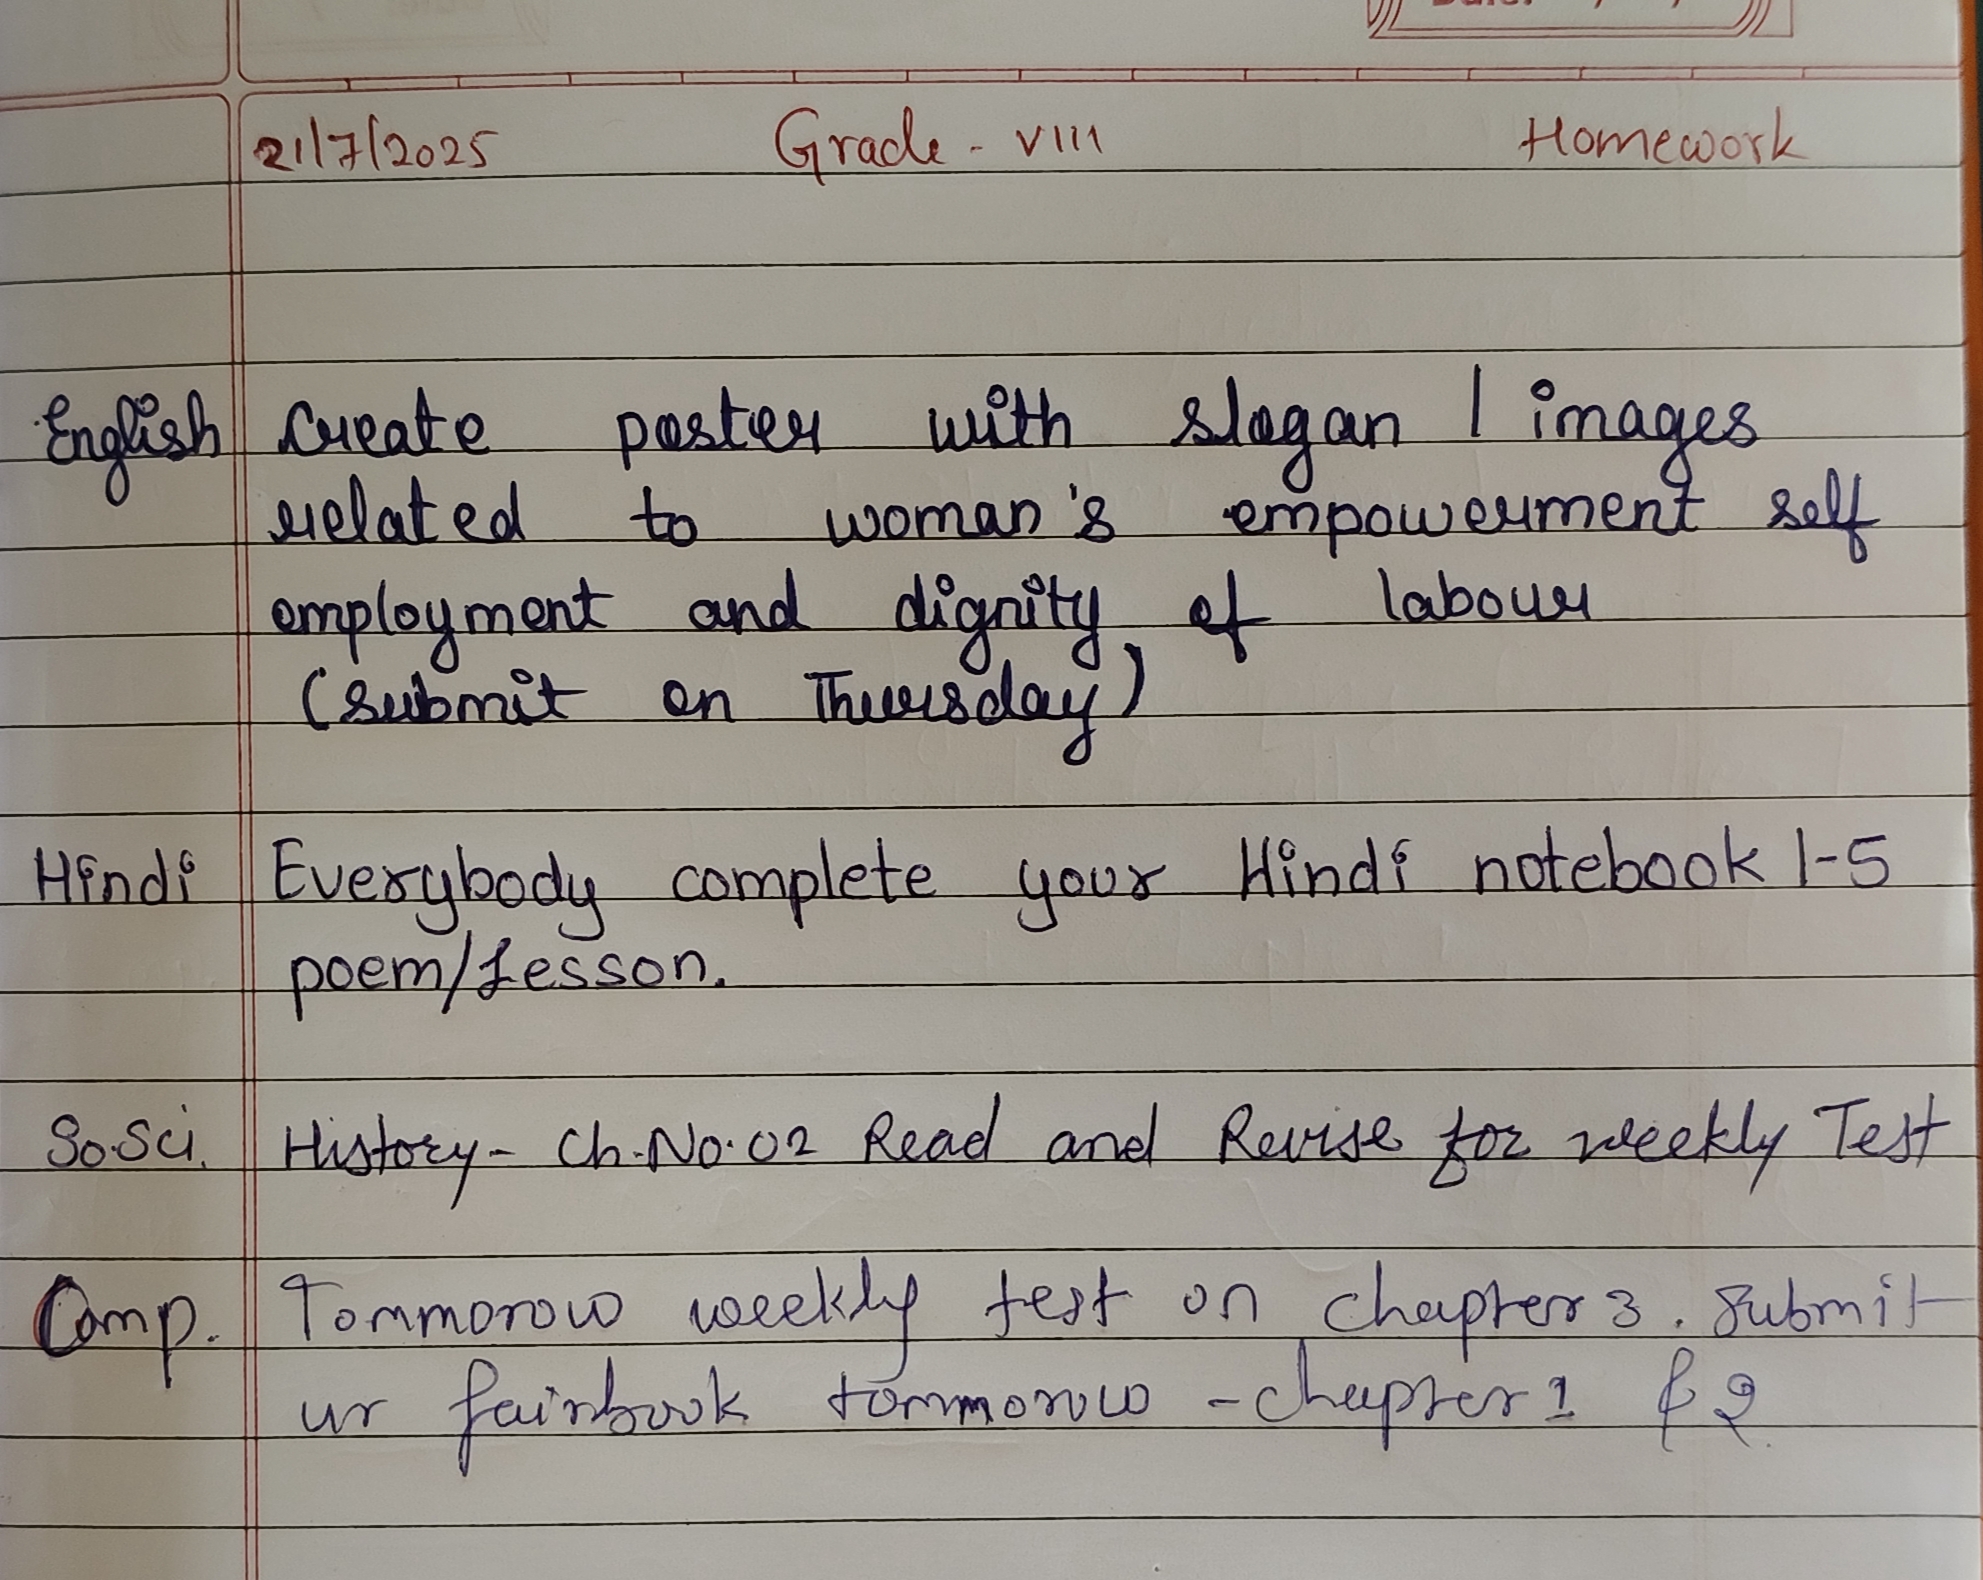 Date:
21/7/2025 Grade - VIII Homework
English Create poster with slogan / images
related to woman's empowerment self
employment and dignity of labour
(Submit on Thursday)
Hindi Everybody complete your Hindi notebook 1-5
poem/Lesson.
So.Sci. History- Ch.No.02 Read and Revise for weekly Test
Comp. Tommorow weekly test on chapter 3. Submit
ur fairbook tommorow - chapter 1 & 2